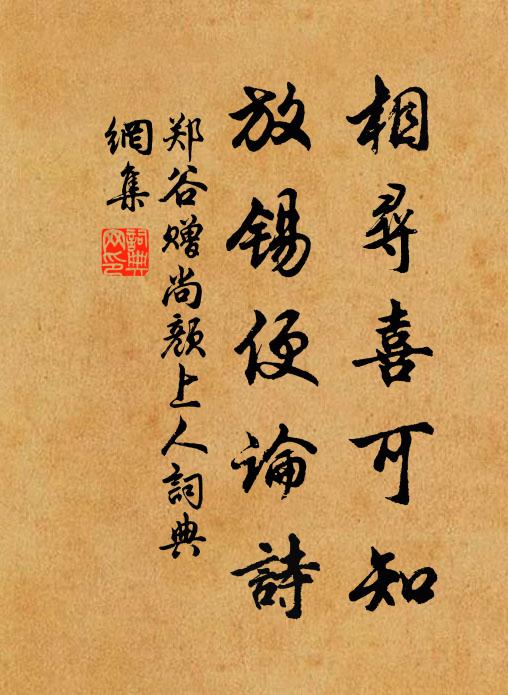 相尋喜可知
放锡便論詩
郑谷赠尚颜上人詞典
網集
詞典
网印